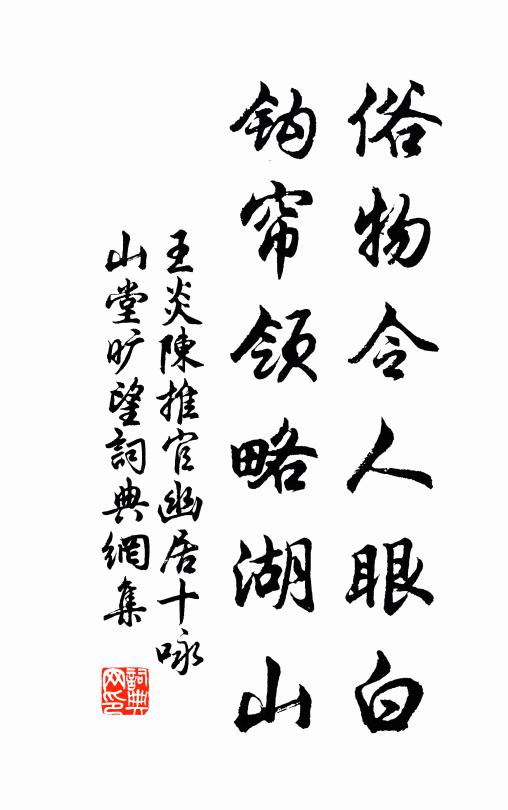 俗物令人眼白
钩帘领略湖山
王炎陳推官幽居十咏
山堂旷望詞典網集
詞典网印